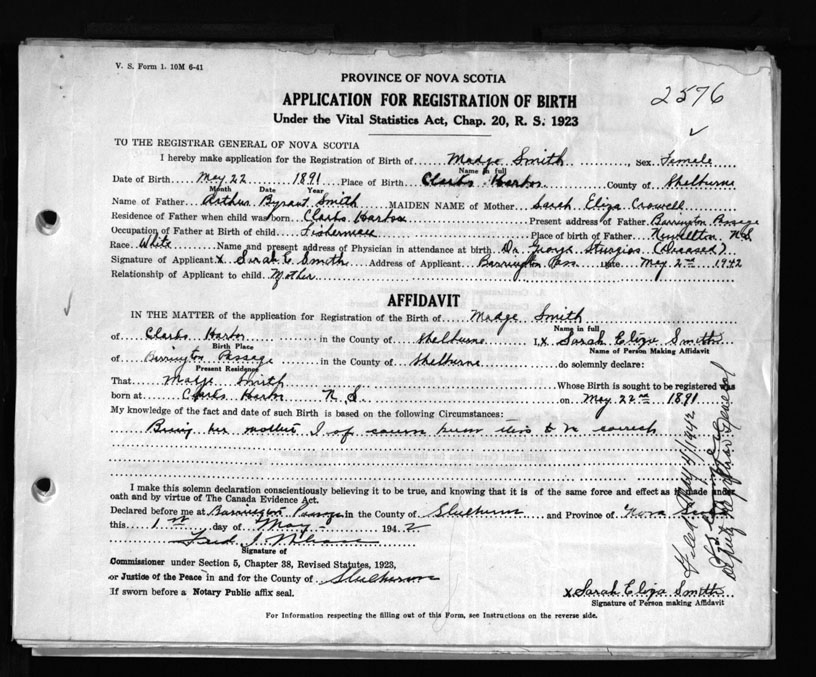 V. S. Form 1. 10M 6-41
PROVINCE OF NOVA SCOTIA
APPLICATION FOR REGISTRATION OF BIRTH
2576
Under the Vital Statistics Act, Chap. 20, R. S. 1923
TO THE REGISTRAR GENERAL OF NOVA SCOTIA
I hereby make application for the Registration of Birth of Madge Smith, Sex Female
Name in full
Date of Birth May 22 1891 Place of Birth Clarks Harbor County of Shelburne
Month Date Year
Name of Father Arthur Byrant Smith MAIDEN NAME of Mother Sarah Eliza Crowell
Residence of Father when child was born Clarks Harbor Present address of Father Barrington Passage
Occupation of Father at Birth of child Fisherman Place of birth of Father Newellton N.S
Race White Name and present address of Physician in attendance at birth Dr George Sturgis
Signature of Applicant x Sarah E Smith Address of Applicant Barrington Pass Date May 2nd 1942
Relationship of Applicant to child Mother
AFFIDAVIT
IN THE MATTER of the application for Registration of the Birth of Madge Smith
Name in full
of Clarks Harbor in the County of Shelburne I, x Sarah Eliza Smith
Birth Place Name of Person Making Affidavit
of Barrington Passage in the County of Shelburne do solemnly declare:
Present Residence
That Madge Smith Whose Birth is sought to be registered was
born at Clarks Harbor N. S. on May 22nd 1891
My knowledge of the fact and date of such Birth is based on the following Circumstances:
Being her mother I of course know this to be correct
I make this solemn declaration conscientiously believing it to be true, and knowing that it is of the same force and effect as if made under
oath and by virtue of The Canada Evidence Act.
Declared before me at Barrington Passage in the County of Shelburne and Province of Nova Scotia
this 1st day of May 1942
Fred J.
Signature of
Commissioner under Section 5, Chapter 38, Revised Statutes, 1923,
or Justice of the Peace in and for the County of Shelburne
If sworn before a Notary Public affix seal.
x Sarah Eliza Smith
Signature of Person making Affidavit
For Information respecting the filling out of this Form, see Instructions on the reverse side.
Filed May 4/1942
Deputy Registrar General